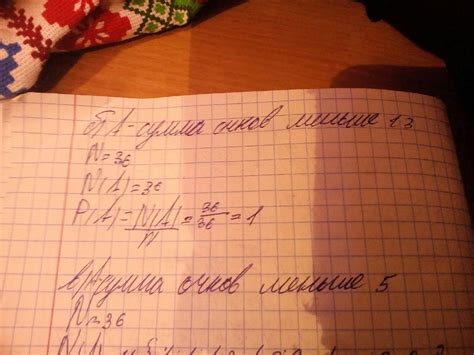 б) А - сумма очков меньше 13
N = 36
N(A) = 36
P(A) = N(A)/N = 36/36 = 1
в) А - сумма очков меньше 5
N = 36
N(A)